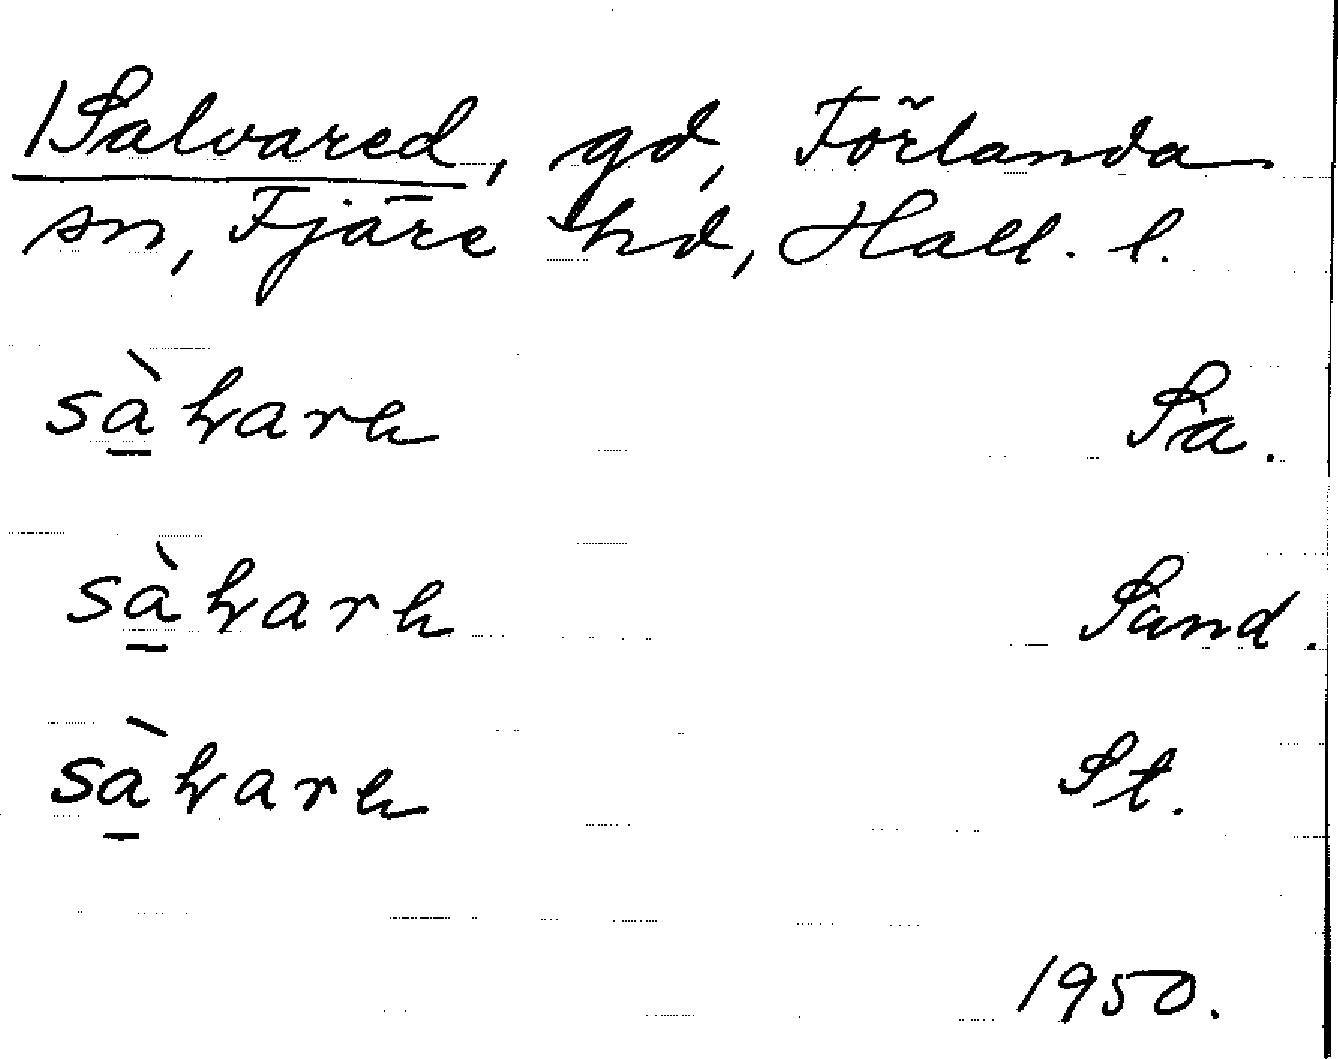 /Salvared, gd, Förlanda
sn, Fjäre hd, Hall. l.
sàvarə Sa.
sàvarə Sand.
sàvarə St.
1950.